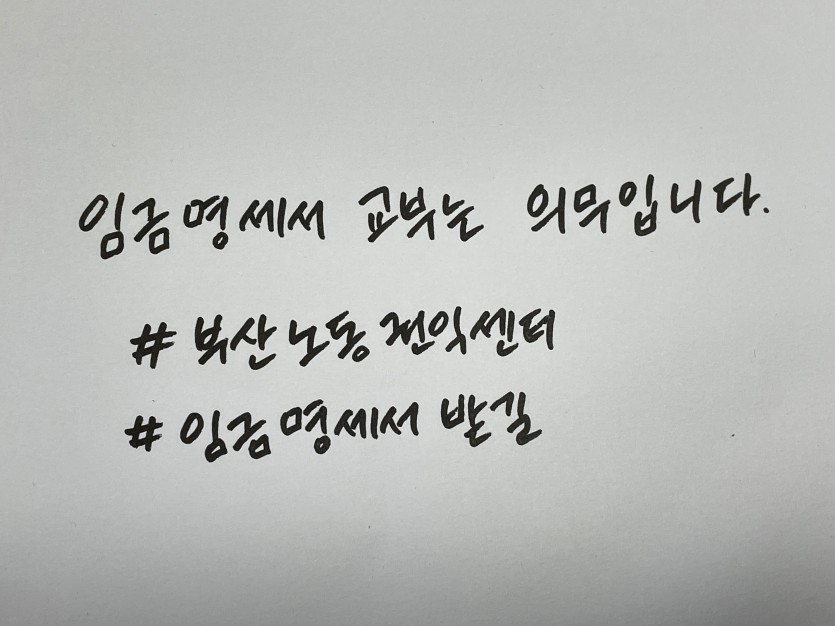 임금명세서 교부는 의무입니다.
# 부산노동권익센터
# 임금명세서 받길